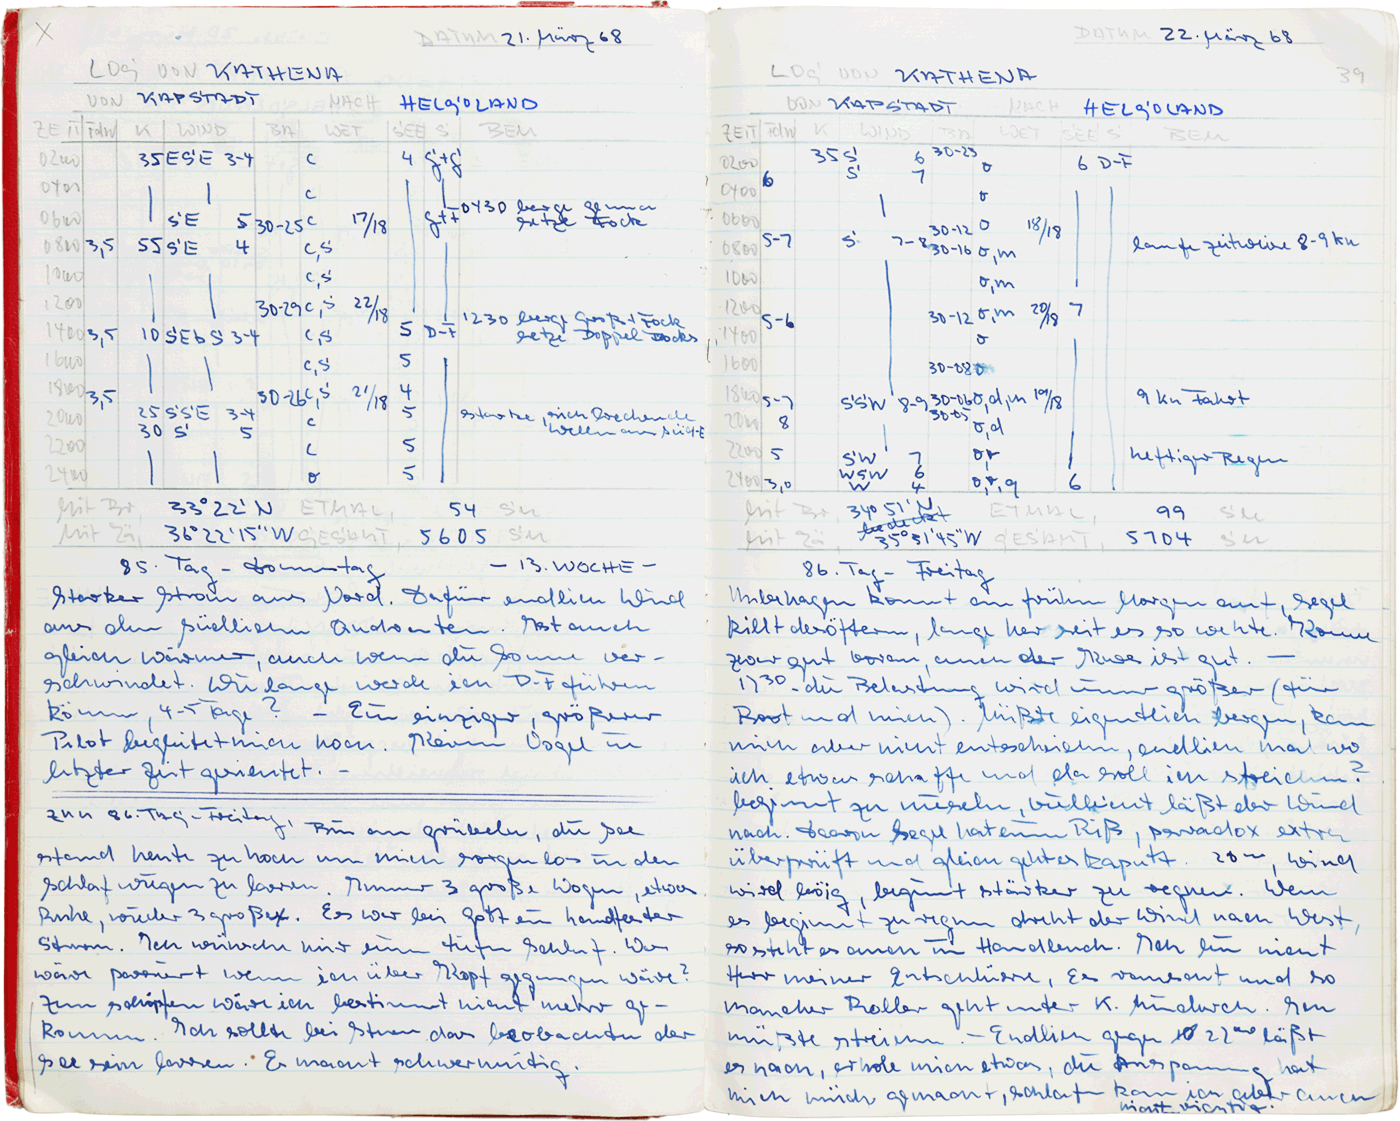 X
DATUM 21. März 68
LOG VON KATHENA
VON KAPSTADT NACH HELGOLAND
ZEIT Fdw K WIND BA WET SEE S BEM
0200 35 ESE 3-4 c 4 g+g
0400 c 0430 berge genua
0600 SE 5 30-25 c 17/18 g+F setze Fock
0800 3,5 55 SE 4 c,s
1000 c,s
1200 30-29 c,s 22/18 1230 berge Groß+Fock
1400 3,5 10 SEbS 3-4 c,s 5 D-F setze Doppel Focks
1600 c,s 5
1800 3,5 30-26 c,s 21/18 4
2000 25 SSE 3-4 c 5 starke, sich brechende
30 S 5 Wellen aus Süd-E
2200 c 5
2400 o 5
Mit Br, 33°22'N ETMAL, 54 SM
Mit Lä, 36°22'15"W GESAMT, 5605 SM
85. Tag - Donnerstag - 13. WOCHE -
Starker Strom aus Nord. Dafür endlich Wind
aus den südlichen Quadranten. Ist auch
gleich wärmer, auch wenn die Sonne ver-
schwindet. Wie lange werde ich D-F führen
können, 4-5 Tage? - Ein einziger, größerer
Pilot begleitet mich noch. Keinen Vogel in
letzter Zeit gesichtet. -
zum 86. Tag-Freitag, Bin am grübeln, die See
stand heute zu hoch um mich sorgenlos in den
Schlaf wiegen zu lassen. Immer 3 große Wogen, etwas
Ruhe, wieder 3 große. Es war bei Gott ein handfester
Sturm. Ich wünsche mir einen tiefen Schlaf. Was
wäre passiert wenn ich über Kopf gegangen wäre?
Zum schöpfen wäre ich bestimmt nicht mehr ge-
kommen. Ich sollte bei Sturm das beobachten der
See sein lassen. Es macht schwermütig.
DATUM 22. März 68
39
LOG VON KATHENA
VON KAPSTADT NACH HELGOLAND
ZEIT Fdw K WIND BA WET SEE S BEM
0200 35 S 6 30-23 o 6 D-F
6 S 7
0400 o
0600 30-12 o 18/18
0800 5-7 S 7-8 30-16 o,m laufe zeitweise 8-9 kn
1000 o,m
1200 5-6 30-12 o,m 20/18 7
1400 o
1600 30-08 o
1800 5-7 SSW 8-9 30-06 o,d,m 19/18 9 kn Fahrt
2000 8 30-05 o,d
2200 5 SW 7 o,r heftiger Regen
WSW 6
2400 3,0 W 4 o,r,q 6
Mit Br, 34°51'N ETMAL, 99 SM
bedeckt
Mit Lä, 35°51'45"W GESAMT, 5704 SM
86. Tag - Freitag
Unbehagen kommt am frühen Morgen auf, Segel
killt desöftern, lange her seit es so wehte. Komme
zwar gut voran, auch der Kurs ist gut. -
1730 - die Belastung wird immer größer (für
Boot und mich). Müßte eigentlich bergen, kann
mich aber nicht entscheiden, endlich mal wo
ich etwas schaffe und da soll ich streichen?
beginnt zu nieseln, vielleicht läßt der Wind
nach. Segel hat einen Riß, paradox extra
überprüft und gleich geht es kaputt. 2000, Wind
wird böig, beginnt stärker zu regnen. Wenn
es beginnt zu regnen dreht der Wind nach West,
so steht es auch im Handbuch. Ich bin nicht
Herr meiner Entschlüsse, Es rauscht und so
mancher Roller geht unter K. hindurch. Ich
müßte streichen. - Endlich gegen 2200 läßt
es nach, erhole mich etwas, die Anspannung hat
mich müde gemacht, schlafen kann ich aber auch
nicht richtig.